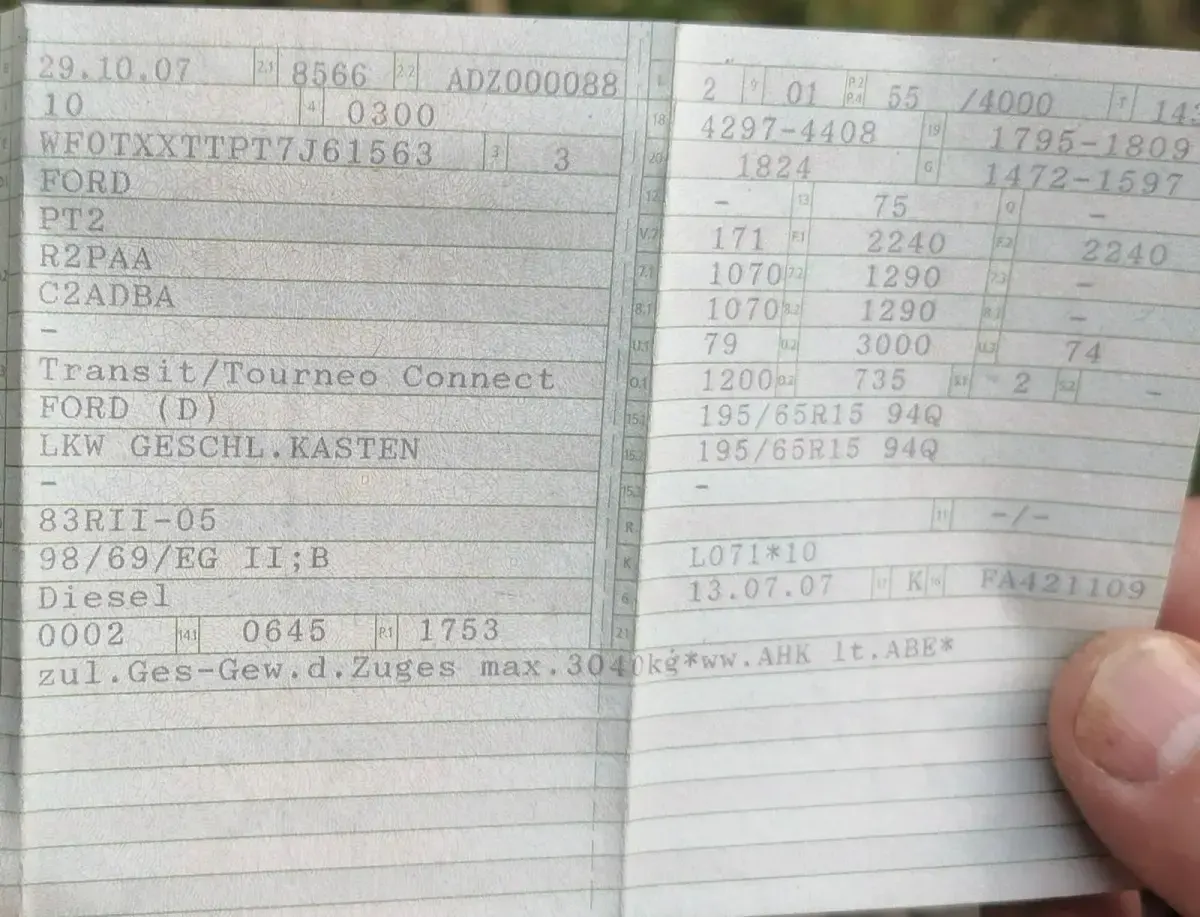 29.10.07 2.1 8566 2.2 ADZ000088
10 4 0300
WF0TXXTTPT7J61563 3 3
FORD
PT2
R2PAA
C2ADBA
-
Transit/Tourneo Connect
FORD (D)
LKW GESCHL.KASTEN
-
83RII-05
98/69/EG II;B
Diesel
0002 14.1 0645 P.1 1753
L 2 9 01 P.2 P.4 55 /4000 T 143
18 4297-4408 19 1795-1809
20 1824 G 1472-1597
12 - 13 75 Q -
V.7 171 F.1 2240 F.2 2240
7.1 1070 7.2 1290 7.3 -
8.1 1070 8.2 1290 8.3 -
U.1 79 U.2 3000 U.3 74
O.1 1200 O.2 735 S.1 2 S.2 -
15.1 195/65R15 94Q
15.2 195/65R15 94Q
15.3 -
R 11 -/-
K L071*10
6 13.07.07 17 K 16 FA421109
21
zul.Ges-Gew.d.Zuges max.3040kg*ww.AHK lt.ABE*